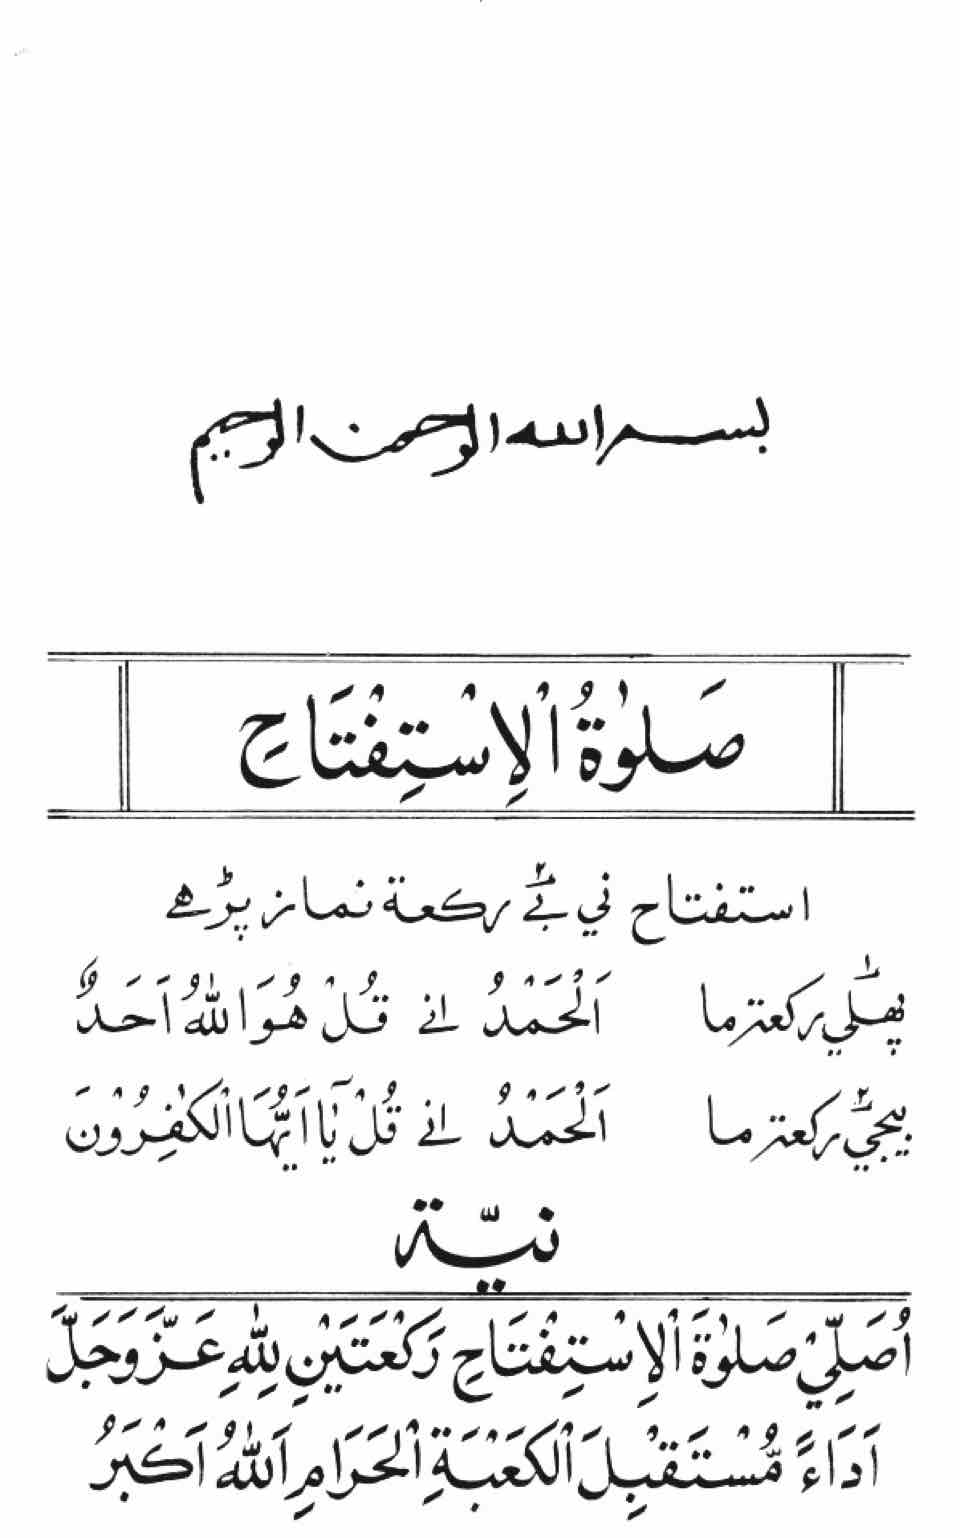 بسم الله الرحمن الرحيم
صَلوٰةُ الْاِسْتِفْتَاحِ
استفتاح ني بےٚ ركعة نماز پڑهے
پهلٰي ركعة ما اَلْحَمْدُ انے قُلْ هُوَ اللّٰهُ اَحَدٌ
بيجيٚ ركعة ما اَلْحَمْدُ انے قُلْ يٰٓا اَيُّهَا الْكٰفِرُوْنَ
نيّة
اُصَلِّيْ صَلوٰةَ الْاِسْتِفْتَاحِ رَكْعَتَيْنِ لِلّٰهِ عَزَّ وَجَلَّ
اَدَاءً مُّسْتَقْبِلَ الْكَعْبَةِ الْحَرَامِ اَللّٰهُ اَكْبَرُ